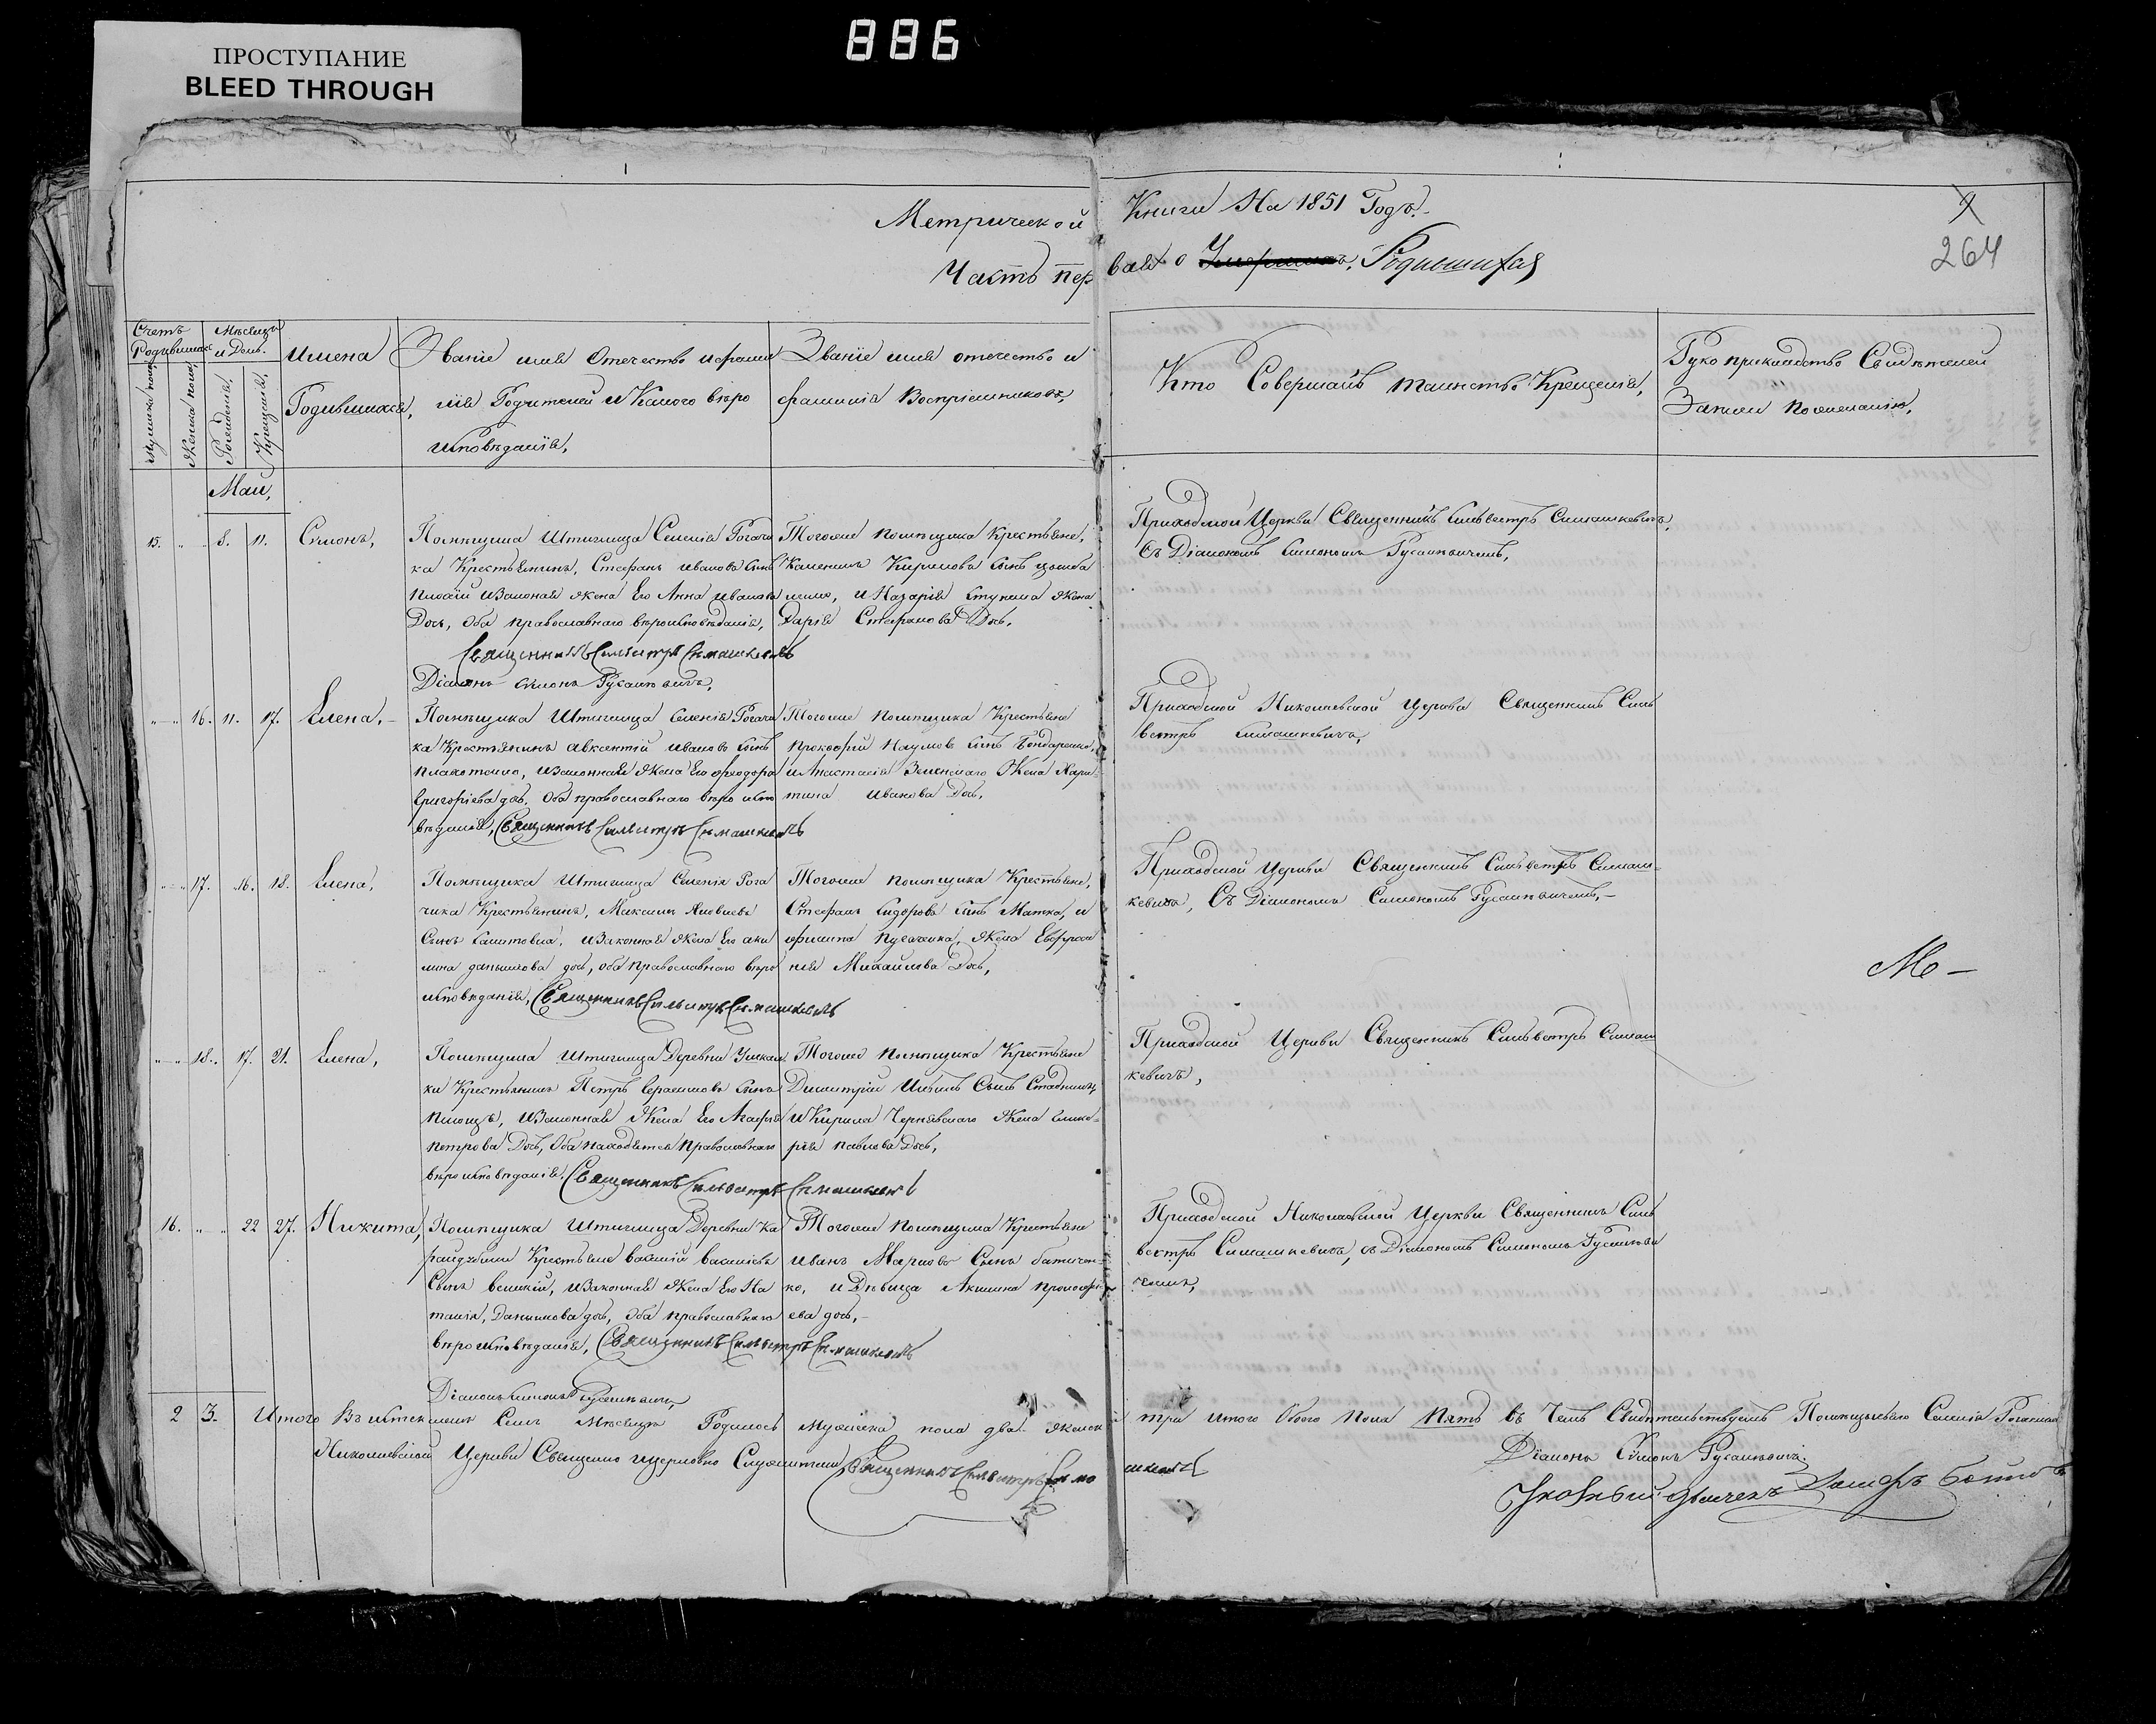 886
ПРОСТУПАНИЕ
BLEED THROUGH
Метрической Книги На 1851 Годъ.
9
264
Часть первая о Умершихъ, Родившихся
Счетъ Родившихся
Мѣсяцъ и День.
Мужска пола,
Женска пола,
Рожденія,
Крещенія,
Имена Родившихся,
Званіе имя Отечество и фами
лія Родителей и Какого вѣро
исповѣданія,
Званіе имя отечество и
фамилія Воспріемниковъ,
Кто Совершалъ таинство Крещенія,
Руко прикладство Свидѣтелей
Записи по желанію,
Маи,
15. " " 8. 11. Симонъ,
Помѣщика Штиглица Селенія Рогачи
ка Крестьянинъ, Стефанъ Ивановъ Сынъ
изаконная жена Его Анна Иванова
Дочь, Оба православнаго вѣроисповѣданія,
Священникъ Сильвестръ Симашкевичъ
Діаконъ Симонъ Русаневичъ,
Тогоже помѣщика Крестьяне,
Кирилова Сынъ
и Назарія жена
Дарія Стефанова Дочь,
Приходской Церкви Священникъ Сильвестръ Симашкевичъ,
Съ Діакономъ Симономъ Русаневичемъ,
" " 16. 11. 17. Елена,
Помѣщика Штиглица Селенія Рогачи
ка Крестьянинъ Авксентій Ивановъ Сынъ
изаконная Жена Его Феодора
Григоріева дочь, Оба православнаго вѣро испо
вѣданія, Священникъ Сильвестръ Симашкевичъ
Тогоже помѣщика Крестьяне
Прокофій Наумовъ Сынъ Бондаренко,
и Анастасія Зеленскаго Жена Хари
тина Иванова Дочь,
Приходской Николаевской Церкви Священникъ Силь
вестръ Симашкевичъ,
" " 17. 16. 18. Елена,
Помѣщика Штиглица Селенія Рога
чика Крестьянинъ, Максимъ Яковлевъ
Сынъ изаконная жена Его Аки
лина Данилова дочь, оба православнаго вѣро
исповѣданія, Священникъ Сильвестръ Симашкевичъ
Тогоже помѣщика Крестьяне,
Стефанъ Сидоровъ Сынъ Матка, и
Филипа Жена Евфроси
нія Михайлова Дочь,
Приходской Церкви Священникъ Сильвестръ Симаш-
кевичъ, Съ Діакономъ Симономъ Русаневичемъ,
" " 18. 17. 21. Елена,
Помѣщика Штиглица Деревни Ушкал
ки Крестьянинъ Петръ Герасимовъ Сынъ
изаконная Жена Его Агафія
Петрова Дочь, Оба находятся православнаго
вѣроисповѣданія, Священникъ Сильвестръ Симашкевичъ
Тогоже помѣщика Крестьяне
Димитрій Сынъ
и Кирила Чернявскаго Жена Глике-
рія Павлова Дочь,
Приходской Церкви Священникъ Сильвестръ Симаш
кевичъ,
16. " " 22 27. Никита,
Помѣщика Штиглица Деревни Ка
раидубини Крестьяне Василій Васильевъ
Сынъ Великій, изаконная Жена Его На
талія, Данилова дочь, Оба православнаго
вѣроисповѣданія, Священникъ Сильвестръ Симашкевичъ
Діаконъ Симонъ Русаневичъ,
Тогоже помѣщика Крестьяне
Иванъ Марковъ Сынъ
ко, и Дѣвица Акилина Прокофі-
ева дочь,
Приходской Николаевской Церкви Священникъ Силь
вестръ Симашкевичъ, съ Діакономъ Симономъ Русаневи
чемъ,
2 3. Итого Въ семъ Мѣсяцѣ Родилось мужеска пола два женска три итого Обоего пола пять въ Чемъ Свидѣтельствуемъ Помѣщичьяго Селенія Рогачика
Николаевской Церкви Священно ицерковно Служители Священникъ Сильвестръ Симашкевичъ
Діаконъ Симонъ Русаневичъ